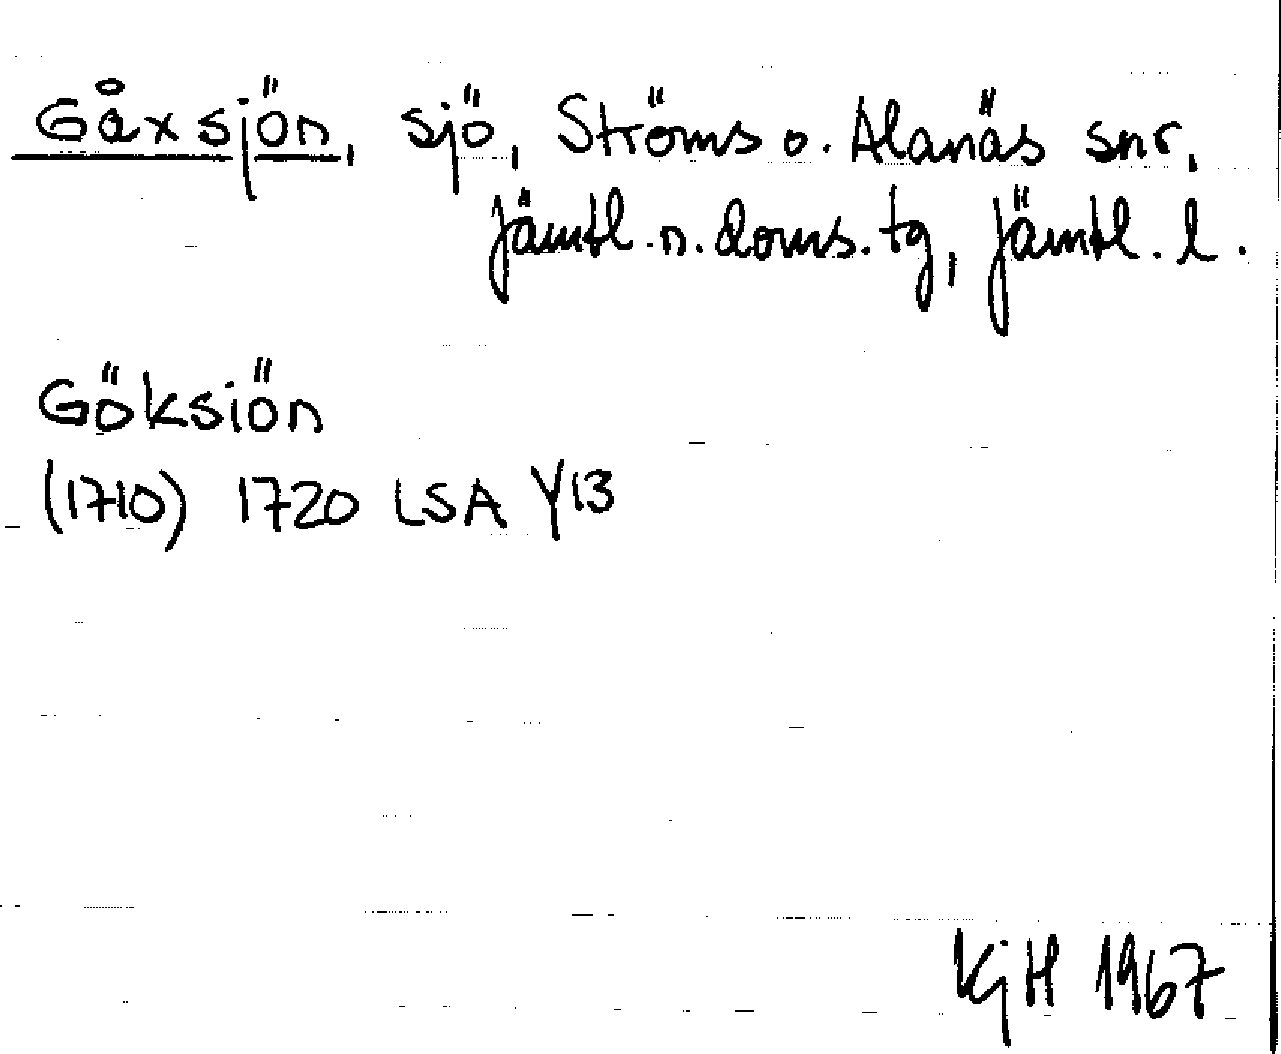 Gåxsjön, sjö, Ströms o. Alanäs snr,
Jämtl. n. doms. tg, Jämtl. l.
Göksiön
(1710) 1720 LSA Y13
KjH 1967